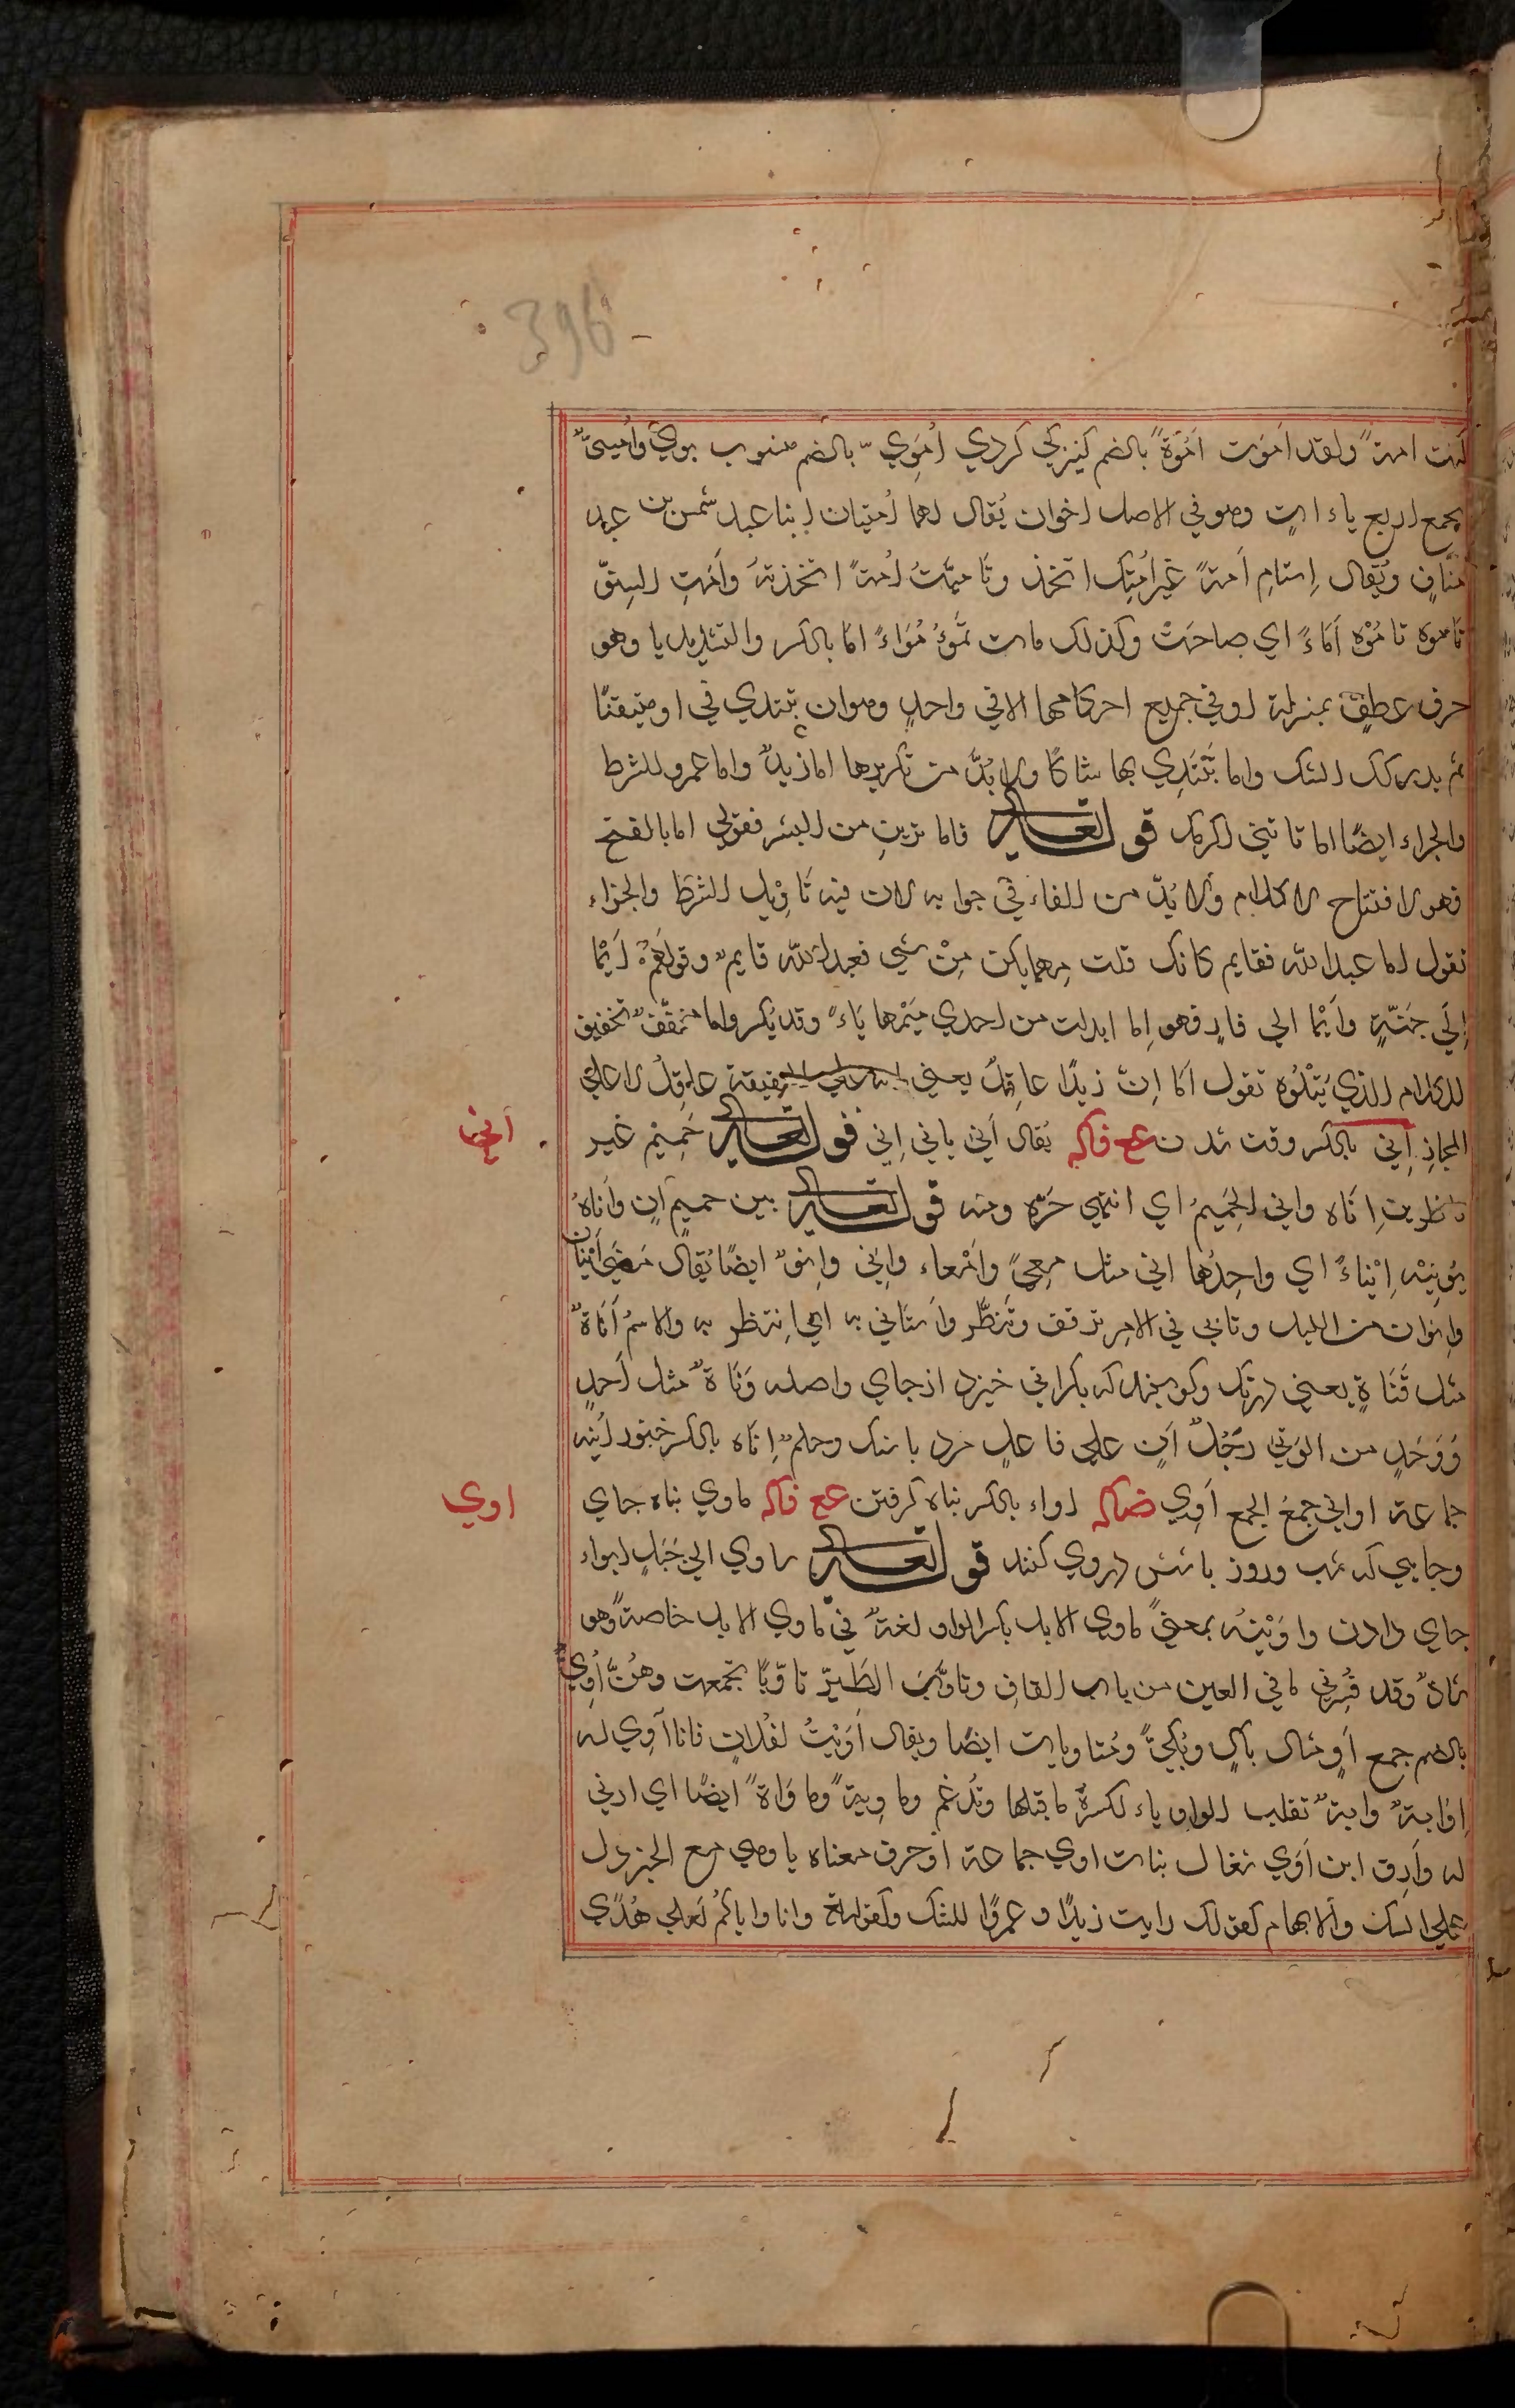 396
كنت امة ولقد اَمَوت اُمُوَّةً بالضم كنيزكي كردي اُمَوِيّ بالضم منسوب بوي واُمَيِّىٌّ
يجمع اربع ياءات وهو في الاصل اخوان يُقال لهما اُمَيَّان ابنا عبد شمس بن عبد
مَنافٍ ويُقال اِستَامِ اَمةً غير اَمَتِك اتخذ وتَاَمَّيتُ اُمةً اتخذتهُ واَمَتِ السِنَّوْر
تاموه تامُوْه اُمَاءً اي صاحَتْ وكذلك ماءت تَمُؤُ مُوَاءً امّا بالكسر والتشديد يا وهو
حرف عطفٍ بمنزلة او في جميع احكامهما الا في واحدٍ وهو ان تبتدي في او متيقنًا
ثم يدرككَ الشك واما تَبْتَدِي بها شاكًا ولا بُدَّ من تكريرها اما زيدٌ واما عمرو للشرط
والجزاء ايضًا اما تاتيني اكرمك قوله تعالى فاما ترين من البشر فقولي اما بالفتح
فهو لافتتاح الكلام ولا بُدّ من الفاء في جوابه لان فيه تَاوِيل الشرط والجزاء
تقول اما عبد الله فقايم كانك قلت مهما يكن مِنْ شي فعبد الله قايم وقولهُمْ اَيْمَا
اِلَى جَنّةٍ واَيْمَا الي نارٍ فهو اِما ابدلت من احدي مِيْمَها يَاءً وقد يُكسر واما مخفّفٌ تخفيف
للكلام الذي يَتْلُوه تقول اَمَا اِنّ زيدًا عاقِلٌ يعني انه علي الحقيقة عاقِلٌ لا علي
المجاز اِنى بالكسر وقت شدن ع ف اكه يُقال اَنَى يانى اِنى قوله تعالى حَمِيْم غير
اَنى
ناظرين اِنَاه وانى الحَمِيْمُ اي انتهي حَرّه ومنه قوله تعالى بين حميم اٰن واَناهُ
يُوْنِيْه اِيْنَاءً اي واحِدُها انى مثل مِعًى واَمْعاء واِنْىٌ واِنوٌ ايضًا يُقال مَضَى اِنْيَان
واِنوان من الليل وتاَنّى في الامر ترفق وتَنَظّر واستانى به اي اِنتظر به والاسم اَنَاةٌ
مثل قَنَاةٍ يعني درنك وكويند كه بكراني خيزد از جاي واصله وَنَاةٌ مثل اَحدٍ
وَوَحَدٍ من الوَنْى رَجُلٌ اَنٍ علي فاعلٍ مرد با سنك وحلم اِنَاه بالكسر خنور اٰنيه
جماعة اواني جمعُ الجمع اَوِي ض اكه اواء بالكسر پناه كرفتن ع ف اكه ماوي پناه جاي
اوي
وجايي كه شب وروز باشش دروي كنند قوله تعالى ساوي الي جَبَلٍ ايواء
جاي دادن واوَيْتُه بمعنىً ماوِي الابل بكسر الواو لغةٌ في ماوَي الابل خاصةً وهو
شاذٌ وقد فُسِّر في ماقي العين من باب القاف وتاوَّتِ الطَيرُ تاوّيًا تجمعت وهُنَّ اُوِيٌّ
بالضم جمع اٰوٍ مثال باكٍ وبُكِيٌّ ومُتاويات ايضًا ويقال اَوَيْتُ لفُلانٍ فانا اٰوِي له
اِوايةً وايةً تقلب الواو ياء لكسرة ما قبلها وتُدغم وماوِيةً وماوَاةً ايضًا اي ارثي
له واَرِق ابن اٰوَي شغال بنات اوي جماعة او حرف معناه يا وهي مع الخبر دل
علي الشك والابهام كقولك رايت زيدًا و عمرًا للشك وكقوله وانا واياكُم لَعلي هُدًي